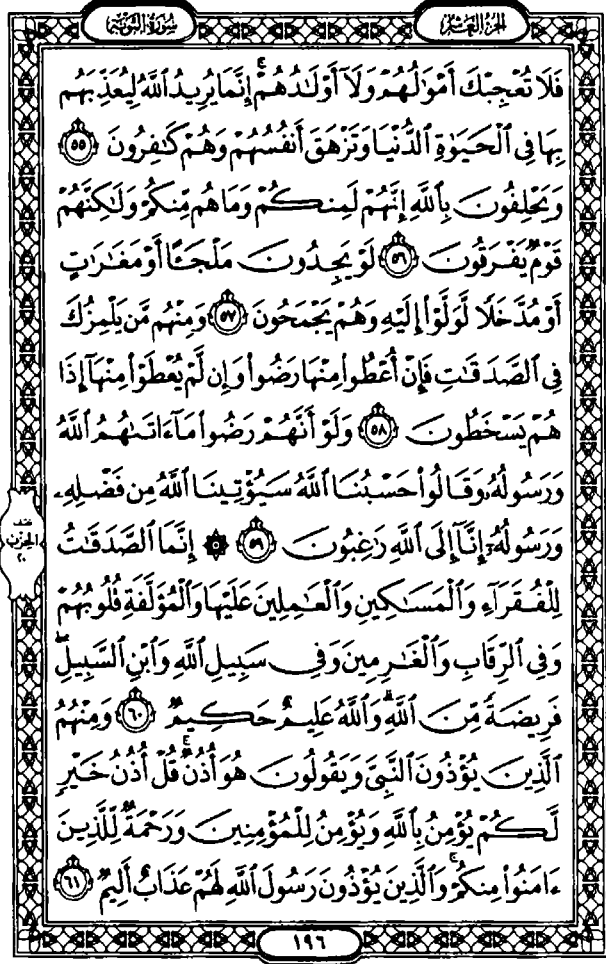 الجزء العاشر
سورة التوبة
فَلَا تُعْجِبْكَ أَمْوَٰلُهُمْ وَلَآ أَوْلَـٰدُهُمْ ۚ إِنَّمَا يُرِيدُ ٱللَّهُ لِيُعَذِّبَهُم
بِهَا فِى ٱلْحَيَوٰةِ ٱلدُّنْيَا وَتَزْهَقَ أَنفُسُهُمْ وَهُمْ كَـٰفِرُونَ ٥٥
وَيَحْلِفُونَ بِٱللَّهِ إِنَّهُمْ لَمِنكُمْ وَمَا هُم مِّنكُمْ وَلَـٰكِنَّهُمْ
قَوْمٌ يَفْرَقُونَ ٥٦ لَوْ يَجِدُونَ مَلْجَـًٔا أَوْ مَغَـٰرَٰتٍ
أَوْ مُدَّخَلًا لَّوَلَّوْا۟ إِلَيْهِ وَهُمْ يَجْمَحُونَ ٥٧ وَمِنْهُم مَّن يَلْمِزُكَ
فِى ٱلصَّدَقَـٰتِ فَإِنْ أُعْطُوا۟ مِنْهَا رَضُوا۟ وَإِن لَّمْ يُعْطَوْا۟ مِنْهَآ إِذَا
هُمْ يَسْخَطُونَ ٥٨ وَلَوْ أَنَّهُمْ رَضُوا۟ مَآ ءَاتَىٰهُمُ ٱللَّهُ
وَرَسُولُهُۥ وَقَالُوا۟ حَسْبُنَا ٱللَّهُ سَيُؤْتِينَا ٱللَّهُ مِن فَضْلِهِۦ
وَرَسُولُهُۥٓ إِنَّآ إِلَى ٱللَّهِ رَٰغِبُونَ ٥٩ ۞ إِنَّمَا ٱلصَّدَقَـٰتُ
لِلْفُقَرَآءِ وَٱلْمَسَـٰكِينِ وَٱلْعَـٰمِلِينَ عَلَيْهَا وَٱلْمُؤَلَّفَةِ قُلُوبُهُمْ
وَفِى ٱلرِّقَابِ وَٱلْغَـٰرِمِينَ وَفِى سَبِيلِ ٱللَّهِ وَٱبْنِ ٱلسَّبِيلِ ۖ
فَرِيضَةً مِّنَ ٱللَّهِ ۗ وَٱللَّهُ عَلِيمٌ حَكِيمٌ ٦٠ وَمِنْهُمُ
ٱلَّذِينَ يُؤْذُونَ ٱلنَّبِىَّ وَيَقُولُونَ هُوَ أُذُنٌ ۚ قُلْ أُذُنُ خَيْرٍ
لَّكُمْ يُؤْمِنُ بِٱللَّهِ وَيُؤْمِنُ لِلْمُؤْمِنِينَ وَرَحْمَةٌ لِّلَّذِينَ
ءَامَنُوا۟ مِنكُمْ ۚ وَٱلَّذِينَ يُؤْذُونَ رَسُولَ ٱللَّهِ لَهُمْ عَذَابٌ أَلِيمٌ ٦١
الحزب
٢٠
١٩٦